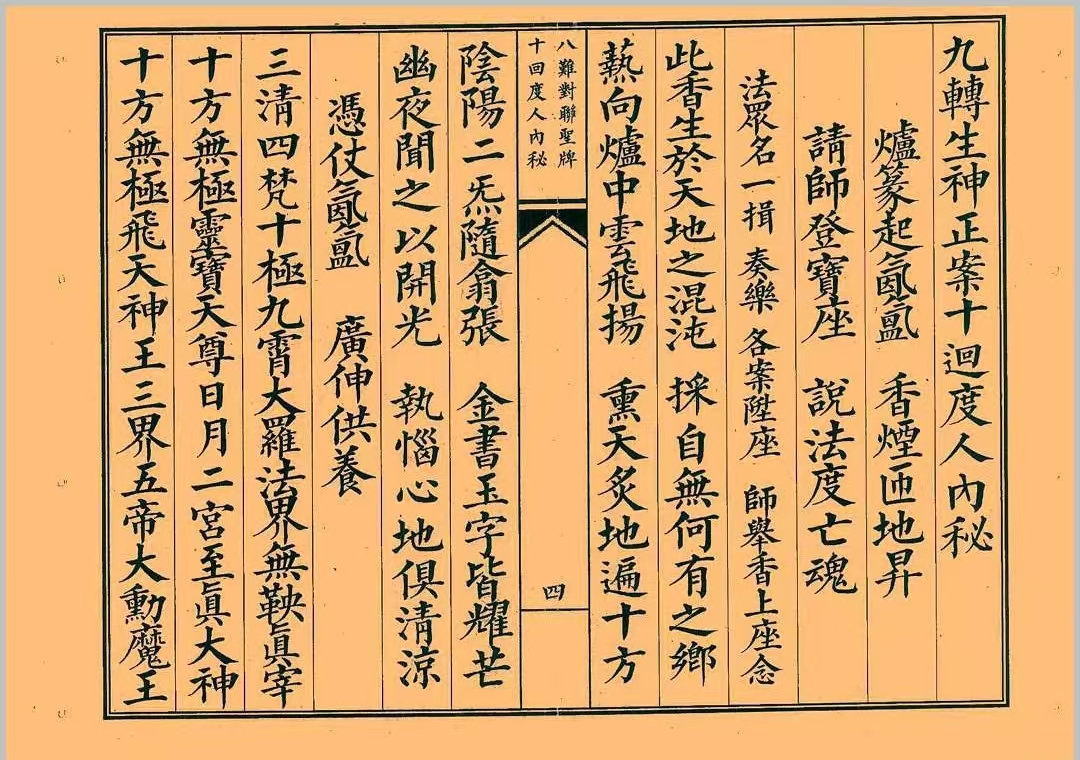 九轉生神正案十迴度人內秘
爐篆起氤氳　香煙匝地昇
請師登寶座　說法度亡魂
法眾名一揖　奏樂　各案陞座　師舉香上座念
此香生於天地之混沌　採自無何有之鄉
爇向爐中雲飛揚　熏天炙地遍十方
八難對聯聖牌
十回度人內秘
四
陰陽二炁隨翕張　金書玉字皆耀芒
幽夜聞之以開光　執惱心地俱清涼
憑仗氤氳　廣伸供養
三清四梵十極九霄大羅法界無鞅眞宰
十方無極靈寶天尊日月二宮至眞大神
十方無極飛天神王三界五帝大勳魔王